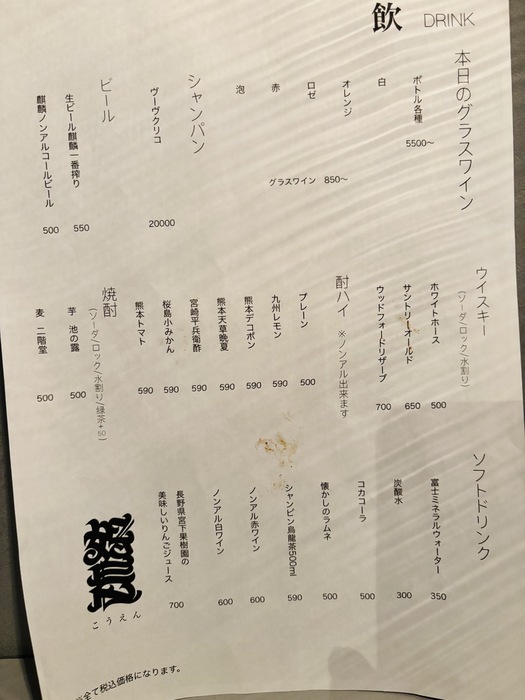 飲 DRINK
本日のグラスワイン
ボトル各種 5500〜
白
オレンジ
ロゼ
赤
泡
グラスワイン 850〜
シャンパン
ヴーヴクリコ 20000
ビール
生ビール麒麟一番搾り 550
麒麟ノンアルコールビール 500
ウイスキー
(ソーダ/ロック/水割り)
ホワイトホース 500
サントリーオールド 650
ウッドフォードリザーブ 700
酎ハイ ※ノンアル出来ます
プレーン 500
九州レモン 590
熊本デコポン 590
熊本天草晩夏 590
宮崎平兵衛酢 590
桜島小みかん 590
熊本トマト 590
焼酎
(ソーダ/ロック/水割り/緑茶+50)
芋 池の露 500
麦 二階堂 500
ソフトドリンク
富士ミネラルウォーター 350
炭酸水 300
コカコーラ 500
懐かしのラムネ 500
シャンピン烏龍茶500ml 590
ノンアル赤ワイン 600
ノンアル白ワイン 600
長野県宮下果樹園の
美味しいりんごジュース 700
こうえん
※全て税込価格になります。